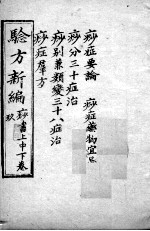 痧症要論　痧症藥物宜忌
痧分三十症治
痧別兼類變三十八症治
痧症羣方
驗方新編 痧書上中下卷
玖